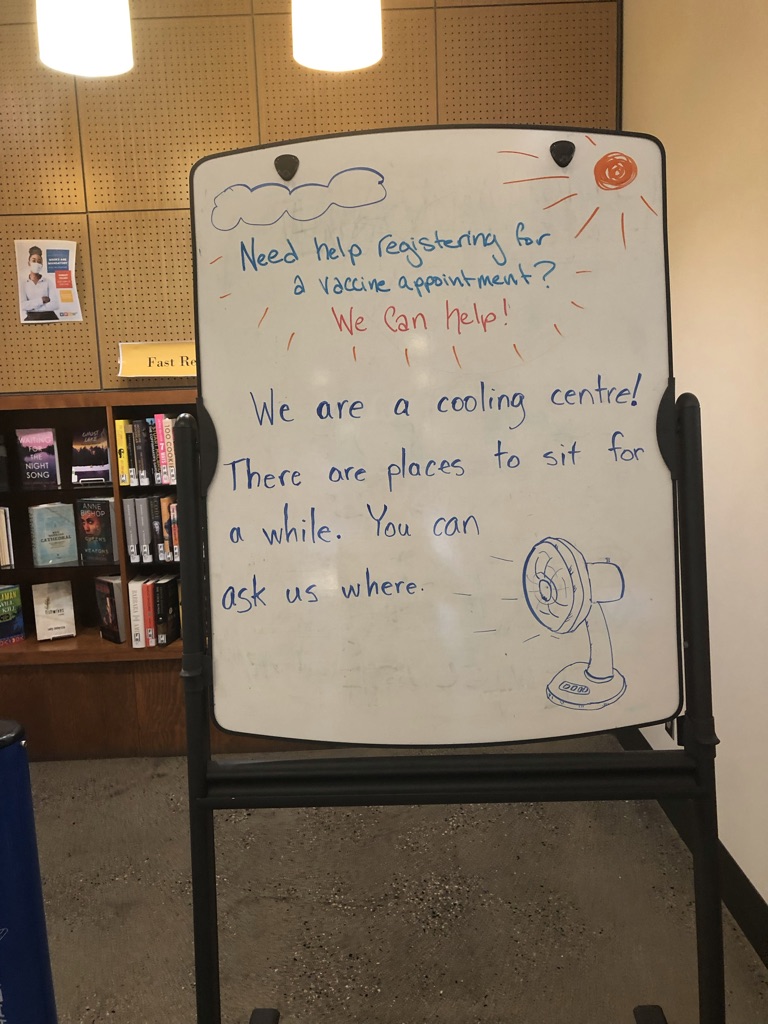 Need help registering for
a vaccine appointment?
We Can help!
We are a cooling centre!
There are places to sit for
a while. You can
ask us where.
Fast Re
WAITING
FOR
THE
NIGHT
SONG
ANNE
BISHOP